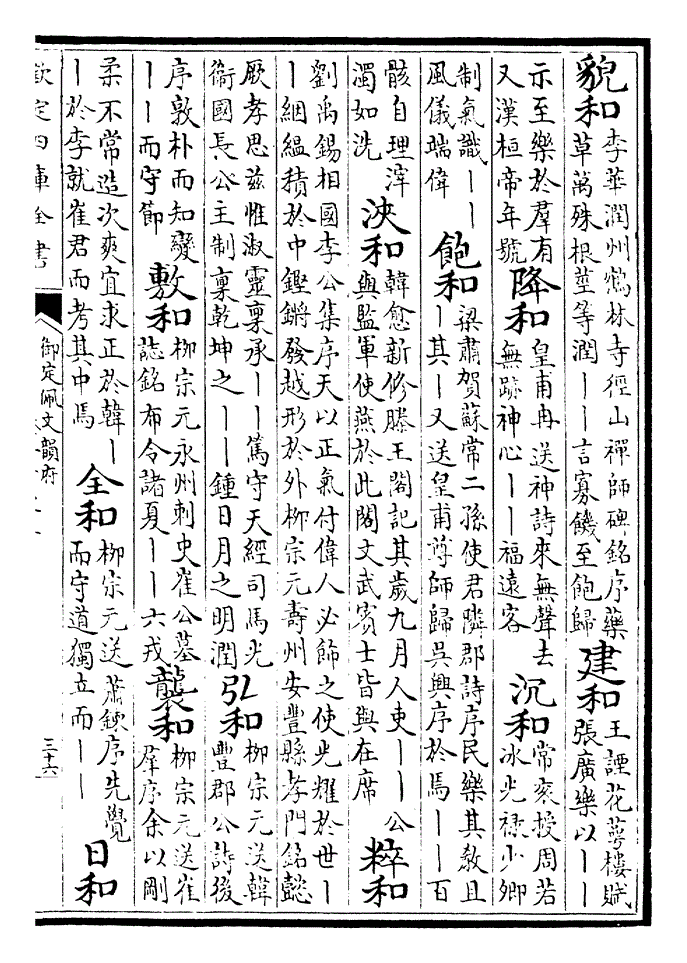 貌和 李華潤州鶴林寺徑山禪師碑銘序藥
草萬殊根莖等潤一一言寡饑至飽歸
建和 王諲花萼樓賦
張廣樂以一一
示至樂於羣有
又漢桓帝年號
降和 皇甫冉送神詩來無聲去
無跡神心一一福遠客
沉和 常袞授周若
冰光祿少卿
制氣識一一
風儀端偉
飽和 梁肅賀蘇常二孫使君隣郡詩序民樂其教且
一其一又送皇甫尊師歸吳興序於焉一一百
骸自理滓
濁如洗
浹和 韓愈新修滕王閣記其歲九月人吏一一公
與監軍使燕於此閣文武賓士皆與在席
粹和
劉禹錫相國李公集序天以正氣付偉人必飾之使光耀於世一
一絪縕積於中鏗鏘發越形於外柳宗元壽州安豐縣孝門銘懿
厥孝思茲惟淑靈稟承一一篤守天經司馬光
衞國長公主制稟乾坤之一一鍾日月之明潤
弘和 柳宗元送韓
豐郡公詩後
序敦朴而知變
一一而守節
敷和 柳宗元永州刺史崔公墓
誌銘布令諸夏一一六戎
襲和 柳宗元送崔
羣序余以剛
柔不常造次爽宜求正於韓一
一於李就崔君而考其中焉
全和 柳宗元送蕭鍊序先覺
而守道獨立而一一
日和
欽定四庫全書
御定佩文韻府
三十六